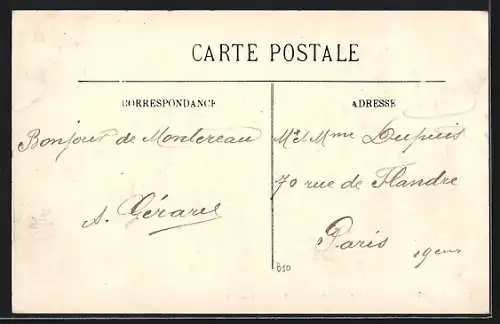 CARTE POSTALE
CORRESPONDANCE
Bonjour de Montereau
A. Gérard
ADRESSE
Mr et Mme Dupuis
70 rue de Flandre
Paris 19eme
B10